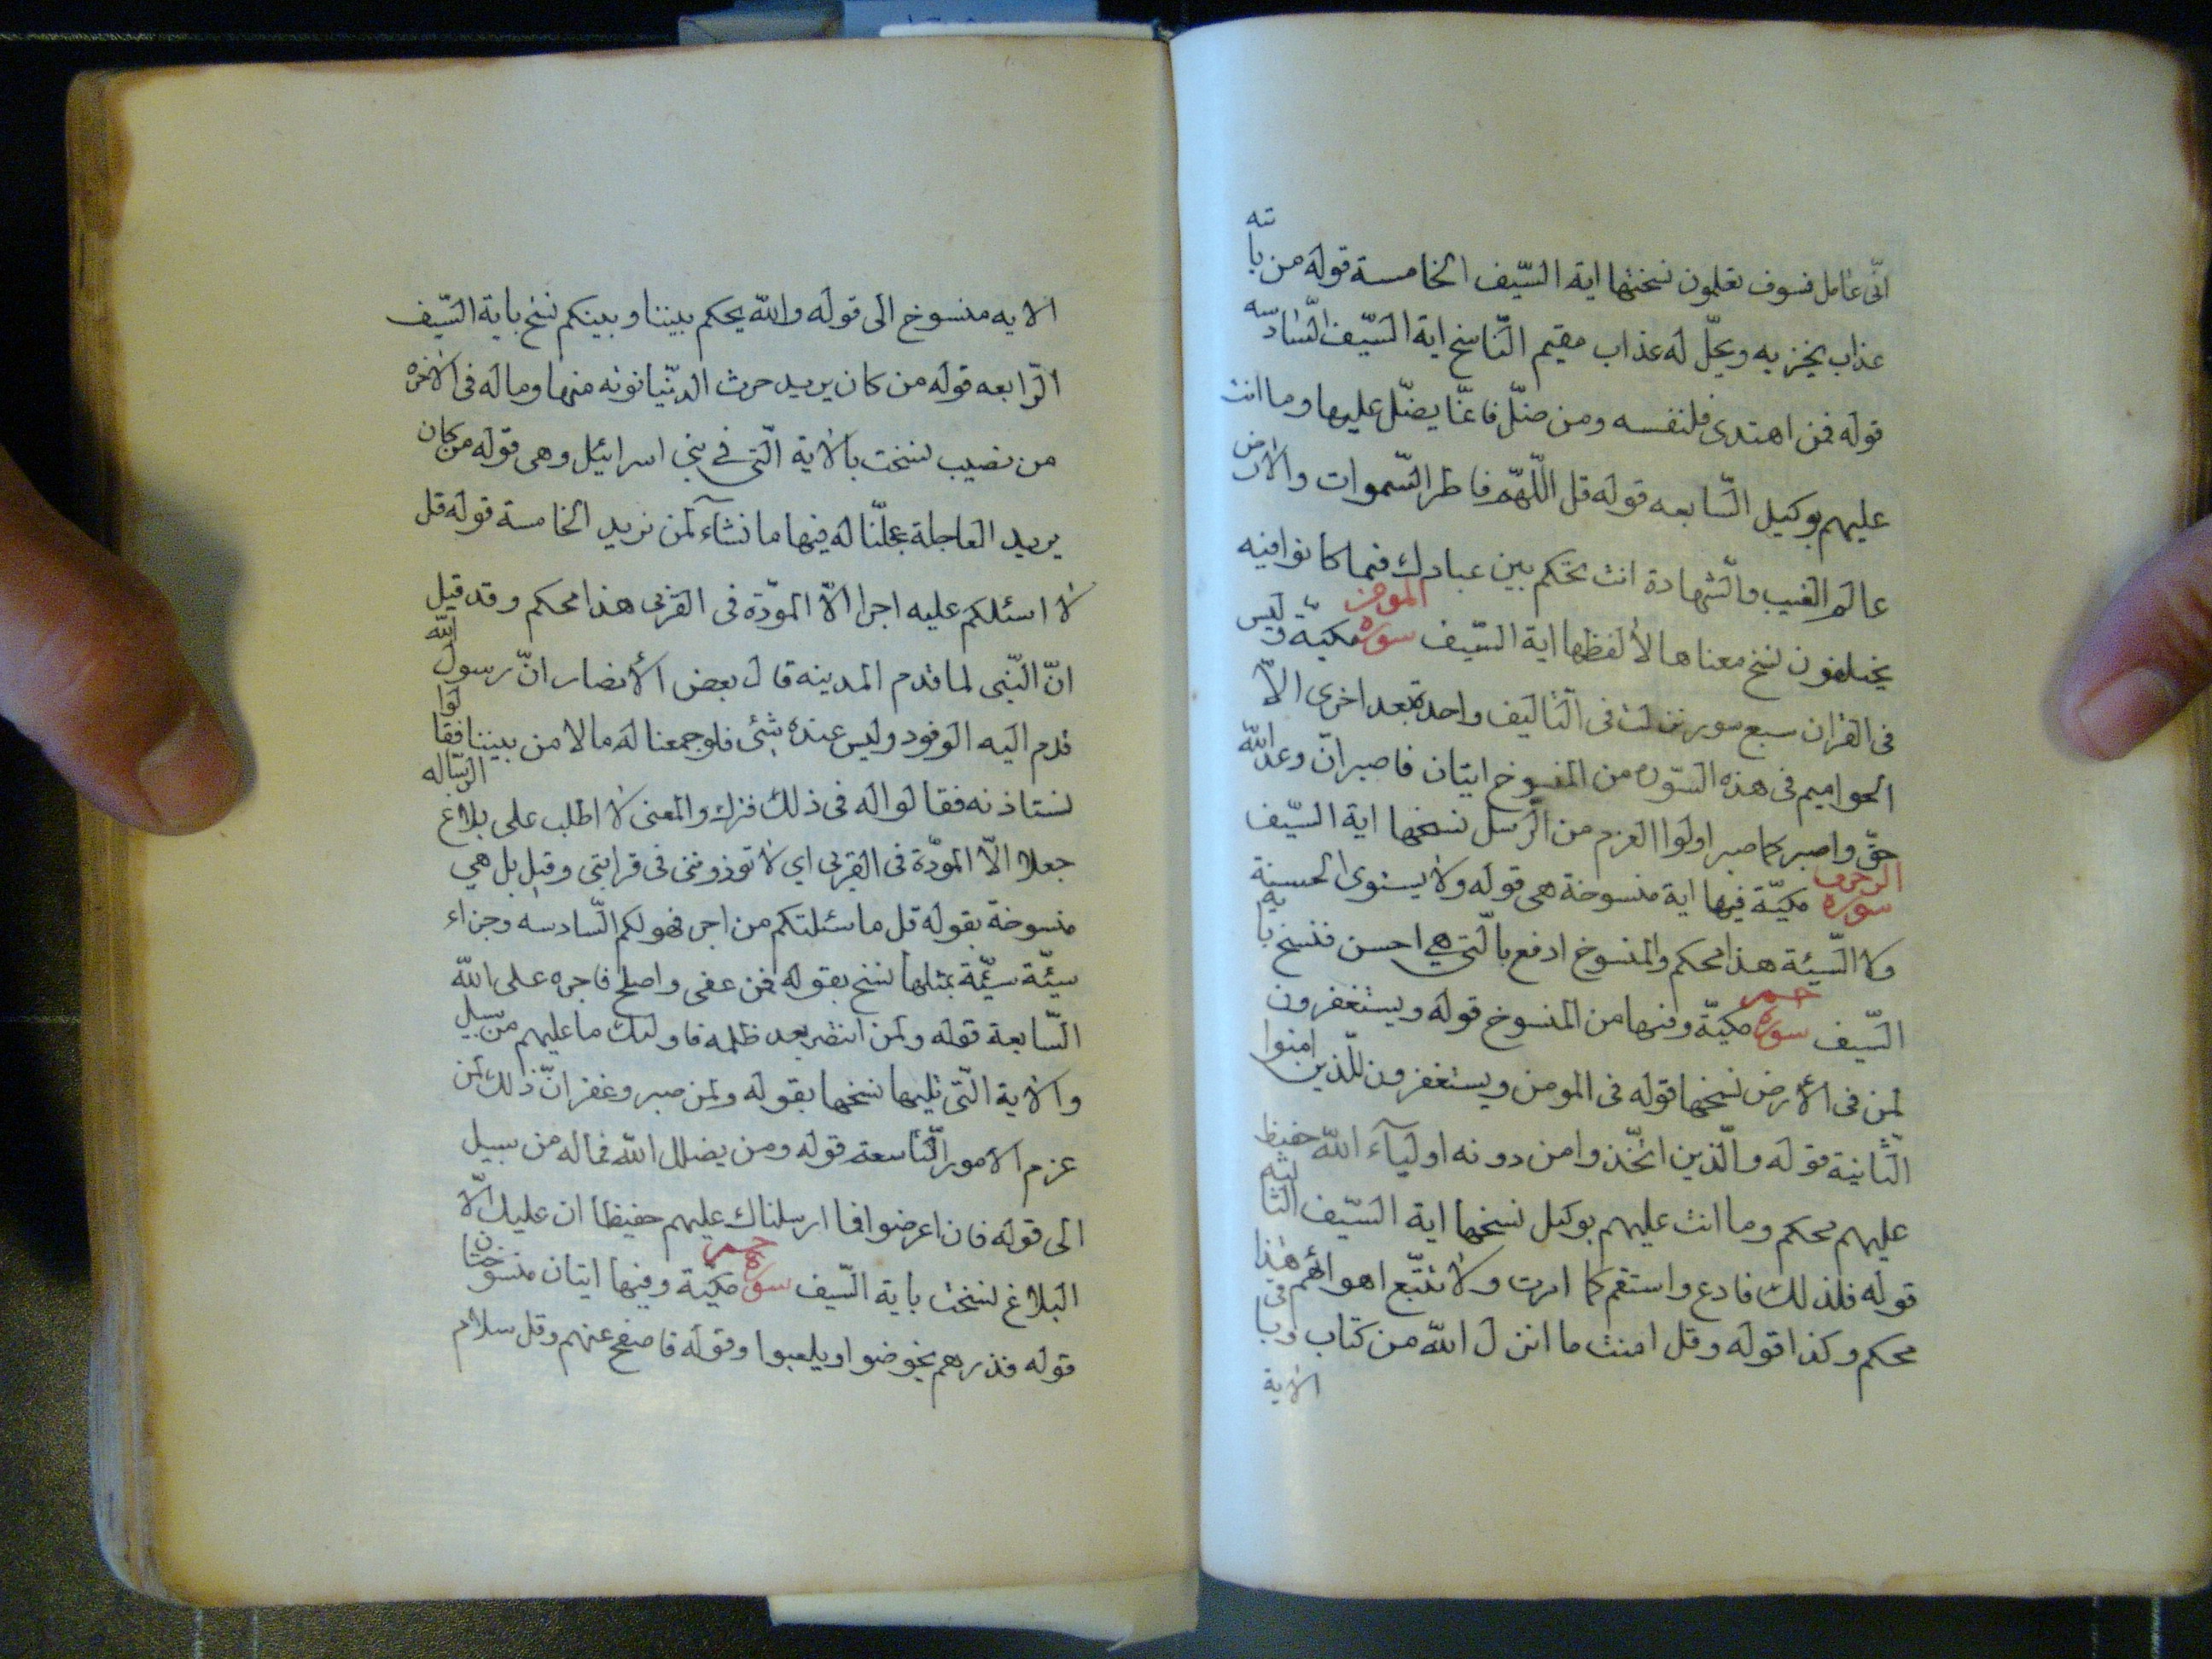 انّى عامل فسوف تعلمون نسختها اية السّيف الخامسة قوله من ياتيه
عذاب يخزيه ويحلّ له عذاب مقيم النّاسخ اية السّيف السّادسه
قوله فمن اهتدى فلنفسه ومن ضلّ فانّما يضلّ عليها وما انت
عليهم بوكيل السّابعه قوله قل اللّهمّ فاطر السّموات والارض
عالم الغيب والشّهادة انت تحكم بين عبادك فيما كانوا فيه
يختلفون نسخ معناها لا لفظها اية السّيف سورة المومن مكيّة وليس
فى القران سبع سور نزلت فى التّاليف واحدة بعد اخرى الاّ
الحواميم فى هذه السّوره من المنسوخ ايتان فاصبر انّ وعد اللّه
حقّ واصبر كما صبر اولوا العزم من الرّسل نسخها اية السّيف
سورة الزخرف مكيّة فيها اية منسوخة هى قوله ولا يستوى الحسنة
ولا السّيئة هذا محكم والمنسوخ ادفع بالّتى هي احسن فنسخ باية
السّيف سورة حمعسق مكيّة وفيها من المنسوخ قوله ويستغفرون
لمن فى الأرض نسخها قوله فى المومن ويستغفرون للّذين امنوا
الثّانية قوله والّذين اتّخذوا من دونه اولياء اللّه حفيظ
عليهم محكم وما انت عليهم بوكيل نسخها اية السّيف الثالثه
قوله فلذلك فادع واستقم كما امرت ولا تتّبع اهوائهم هذا
محكم وكذا قوله وقل امنت ما انزل اللّه من كتاب وباقى
الاية
الايه منسوخ الى قوله واللّه يحكم بيننا وبينكم نسخ باية السّيف
الرّابعه قوله من كان يريد حرث الدّنيا نوته منها وماله فى الاخره
من نصيب نسخت بالاية الّتى في بنى اسرائيل وهى قوله من كان
يريد العاجلة عجلّنا له فيها ما نشآء لمن نريد الخامسة قوله قل
لا اسئلكم عليه اجرا الاّ المودّة فى القربى هذا محكم وقد قيل
انّ النّبى لما قدم المدينه قال بعض الأنصار انّ رسول اللّه
قدم اليه الوفود وليس عنده شئى فلو جمعنا له مالا من بيننا فقالوا
نستاذنه فقالوا له فى ذلك فنزلت والمعنى لا اطلب على بلاغ الرّساله
جعلا الاّ المودّة فى القربى اي لا توذوننى فى قرابتى وقيل بل هي
منسوخة بقوله قل ما سئلتكم من اجر فهو لكم السّادسه وجزاء
سيئّة سيّئة بمثلها نسخ بقوله فمن عفى واصلح فاجره على اللّه
السّابعة قوله ولمن انتصر بعد ظلمه فاولئك ما عليهم من سبيل
والاية الّتى تليها نسخها بقوله ولمن صبر وغفر انّ ذلك لمن
عزم الامور التّاسعة قوله ومن يضلل اللّه فما له من سبيل
الى قوله فان اعرضوا فما ارسلناك عليهم حفيظا ان عليك الّا
البلاغ نسخت باية السّيف سورة مكيّة وفيها ايتان منسوختان
قوله فذرهم يخوضوا ويلعبوا وقوله فاصفح عنهم وقل سلام